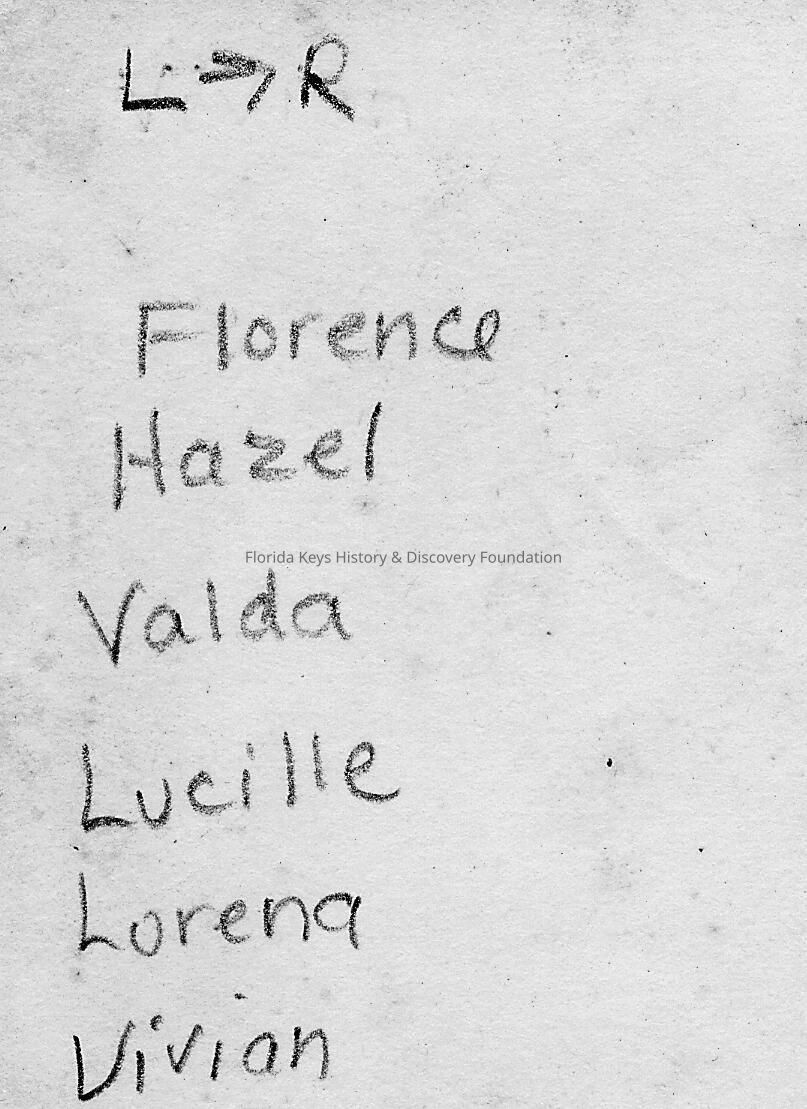 L → R
Florence
Hazel
Florida Keys History & Discovery Foundation
Valda
Lucille
Lorena
Vivian